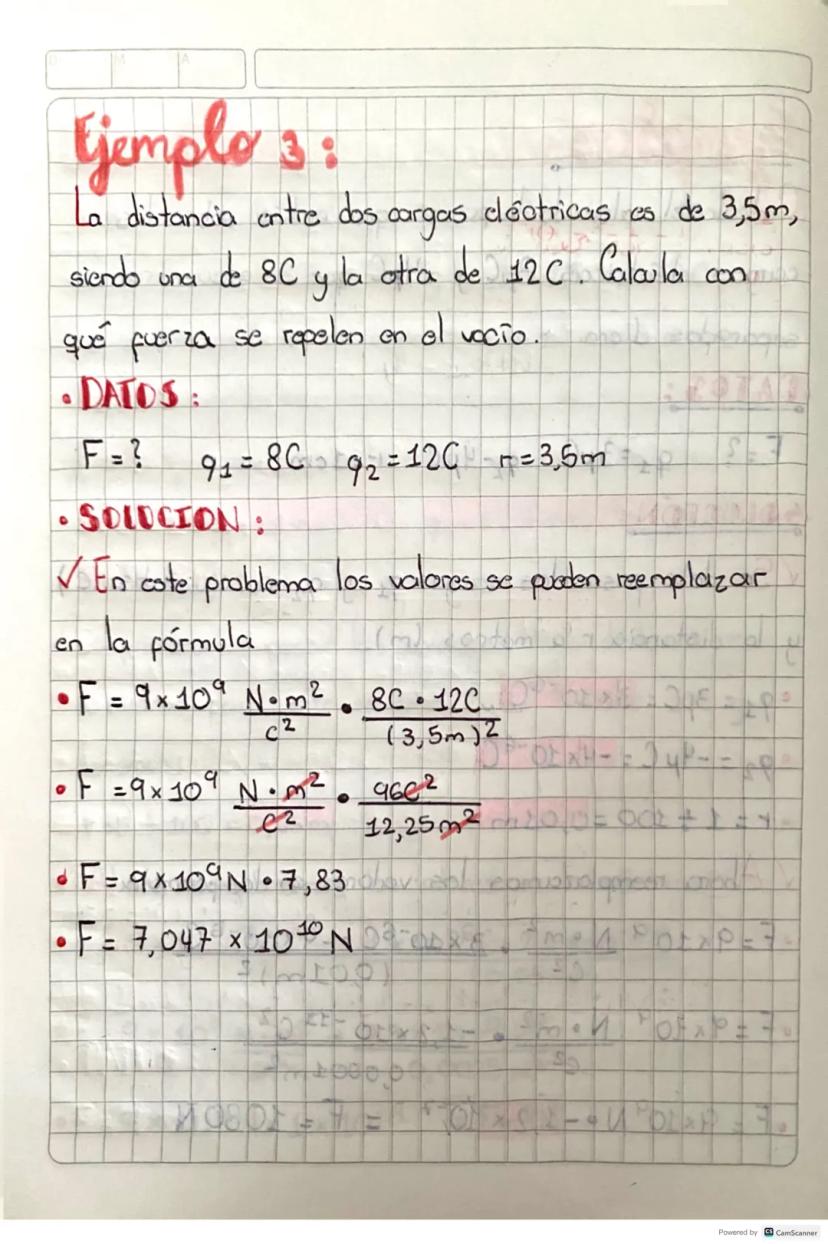 D M A
Ejemplo 3:
La distancia entre dos cargas eléctricas es de 3,5m,
siendo una de 8C y la otra de 12C. Calcula con
qué fuerza se repelen en el vacío.
• DATOS:
F = ? q1 = 8C q2 = 12C r = 3,5m
• SOLUCION:
✓ En este problema los valores se pueden reemplazar
en la fórmula
• F = 9 x 10⁹ N·m²/C² • 8C • 12C/(3,5m)²
• F = 9 x 10⁹ N·m²/C² • 96C²/12,25m²
• F = 9 x 10⁹ N • 7,83
• F = 7,047 x 10¹⁰ N
Powered by CS CamScanner